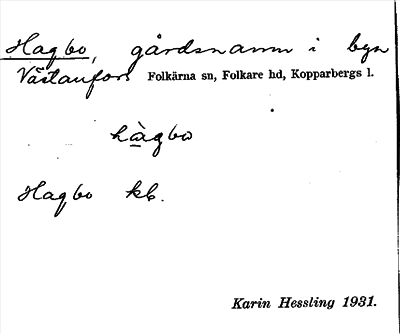 Hagbo, gårdsnamn i byn
Västanfors Folkärna sn, Folkare hd, Kopparbergs l.
hàgbo
Hagbo kb.
Karin Hessling 1931.